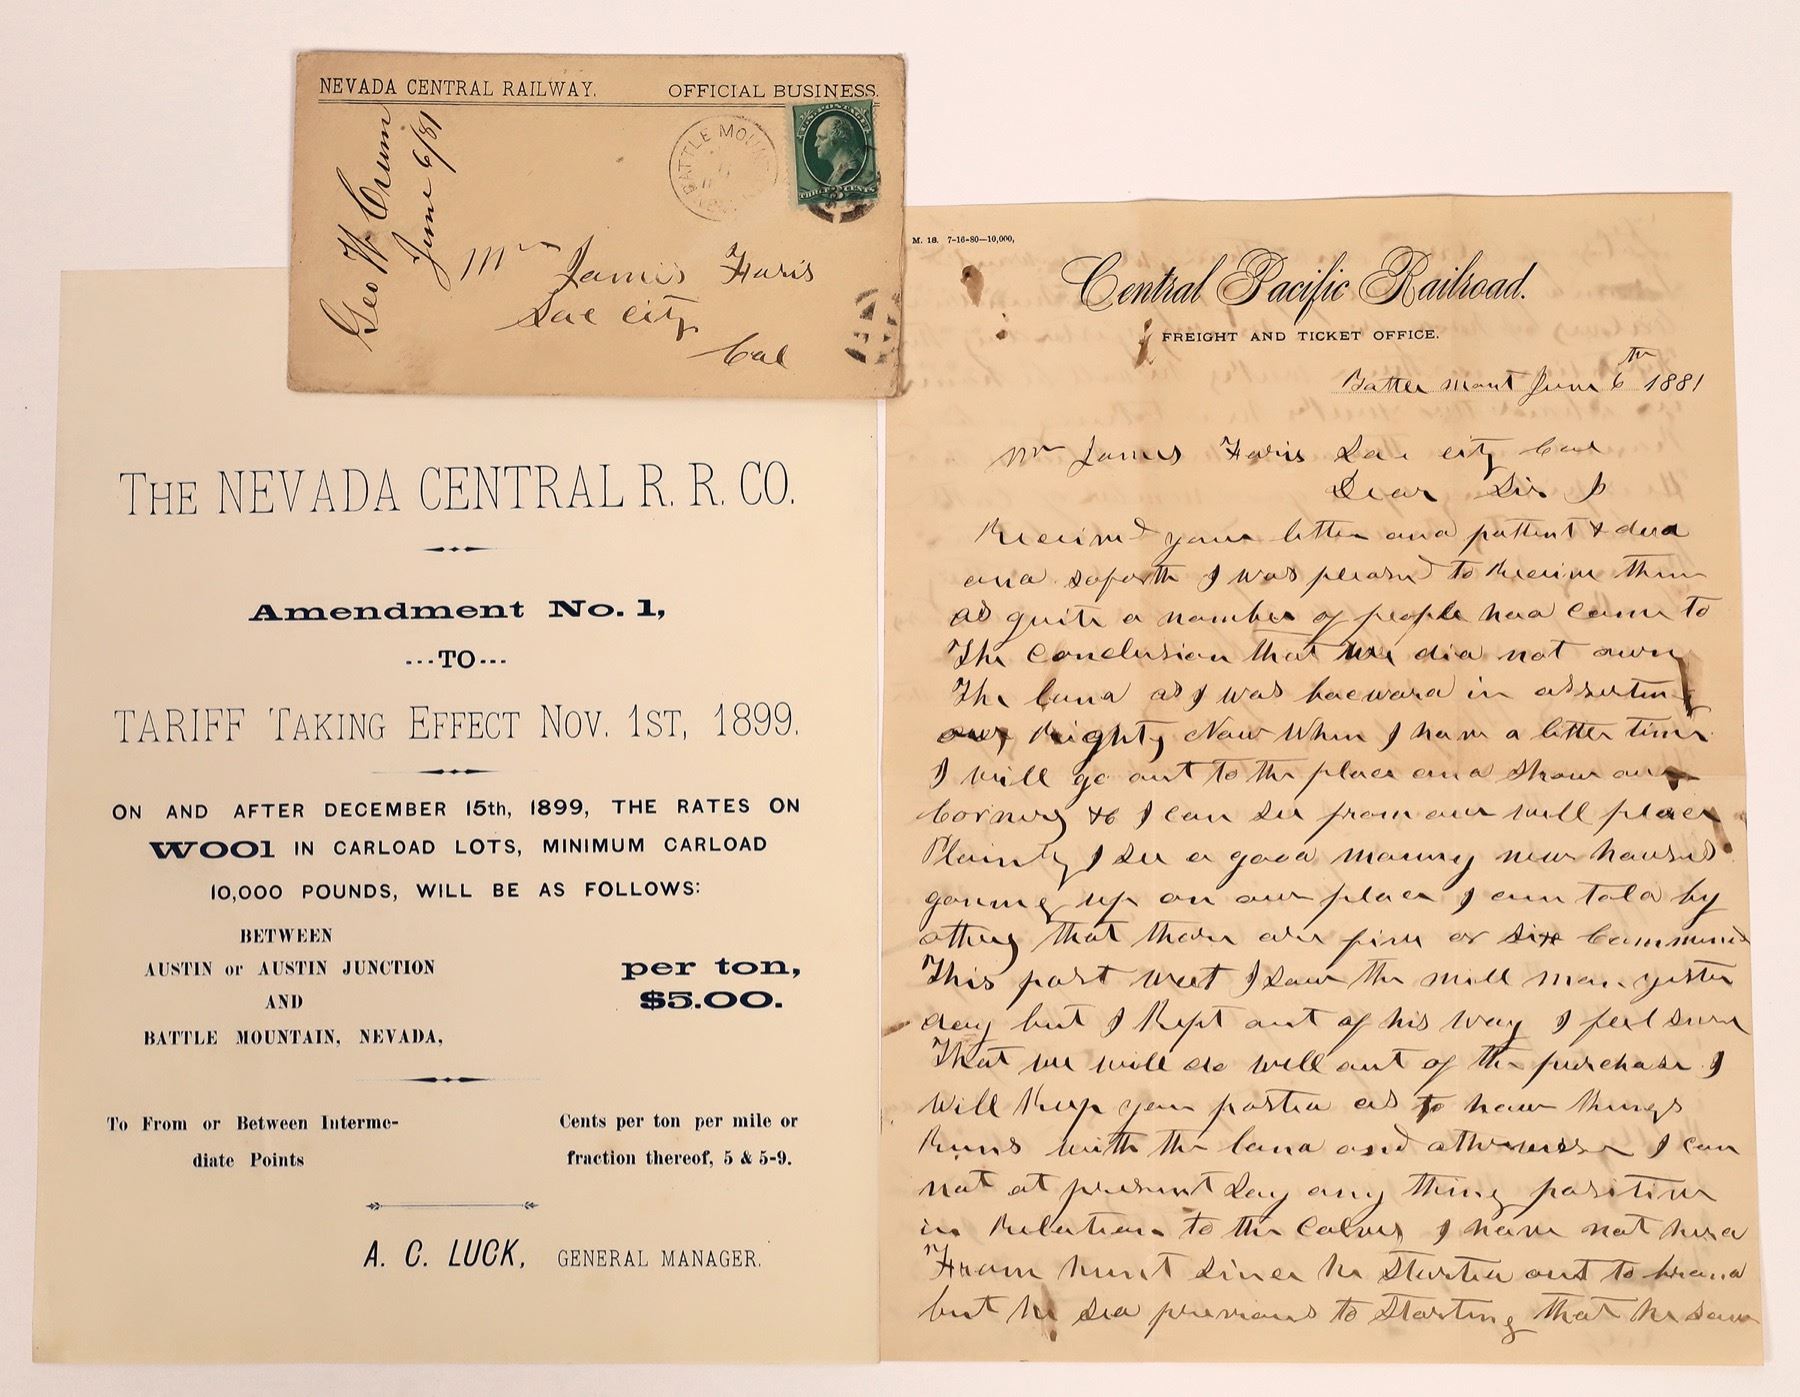 NEVADA CENTRAL RAILWAY. OFFICIAL BUSINESS.
Geo W Crum
June 6/81
BATTLE MOUNT
Mr James Faris
Sac city
Cal
THE NEVADA CENTRAL R. R. CO.
Amendment No. 1,
---TO---
TARIFF TAKING EFFECT NOV. 1ST, 1899.
ON AND AFTER DECEMBER 15th, 1899, THE RATES ON
WOOl IN CARLOAD LOTS, MINIMUM CARLOAD
10,000 POUNDS, WILL BE AS FOLLOWS:
BETWEEN
AUSTIN or AUSTIN JUNCTION
AND
BATTLE MOUNTAIN, NEVADA,
per ton,
$5.00.
To From or Between Interme-
diate Points
Cents per ton per mile or
fraction thereof, 5 & 5-9.
A. C. LUCK, GENERAL MANAGER.
M. 18. 7-16-80—10,000,
Central Pacific Railroad.
FREIGHT AND TICKET OFFICE.
Battle Mont June 6th 1881
Mr James Faris Sac city Cal
Dear Sir I
Received your letter and pattent & deed
and soforth I was pleased to Receive them
as quite a number of people had come to
The Conclusion that we did not own
The land as I was backward in asserting
our Rights Now When I have a little time
I will go out to the place and show our
Corners &c I can see from our mill place
Plainly I see a good manny new houses
going up on our place I am told by
others that there are five or six Commenced
This past week I saw the mill man yester
day but I Kept out of his way I feel sure
That we will do well out of the purchase I
Will Keep you posted as to how things
Runs with the land and otherwise I can
not at present say any thing positive
in Relation to the Calves I have not herd
From hunt since he started out to brand
but he sed previous to Starting that he saw